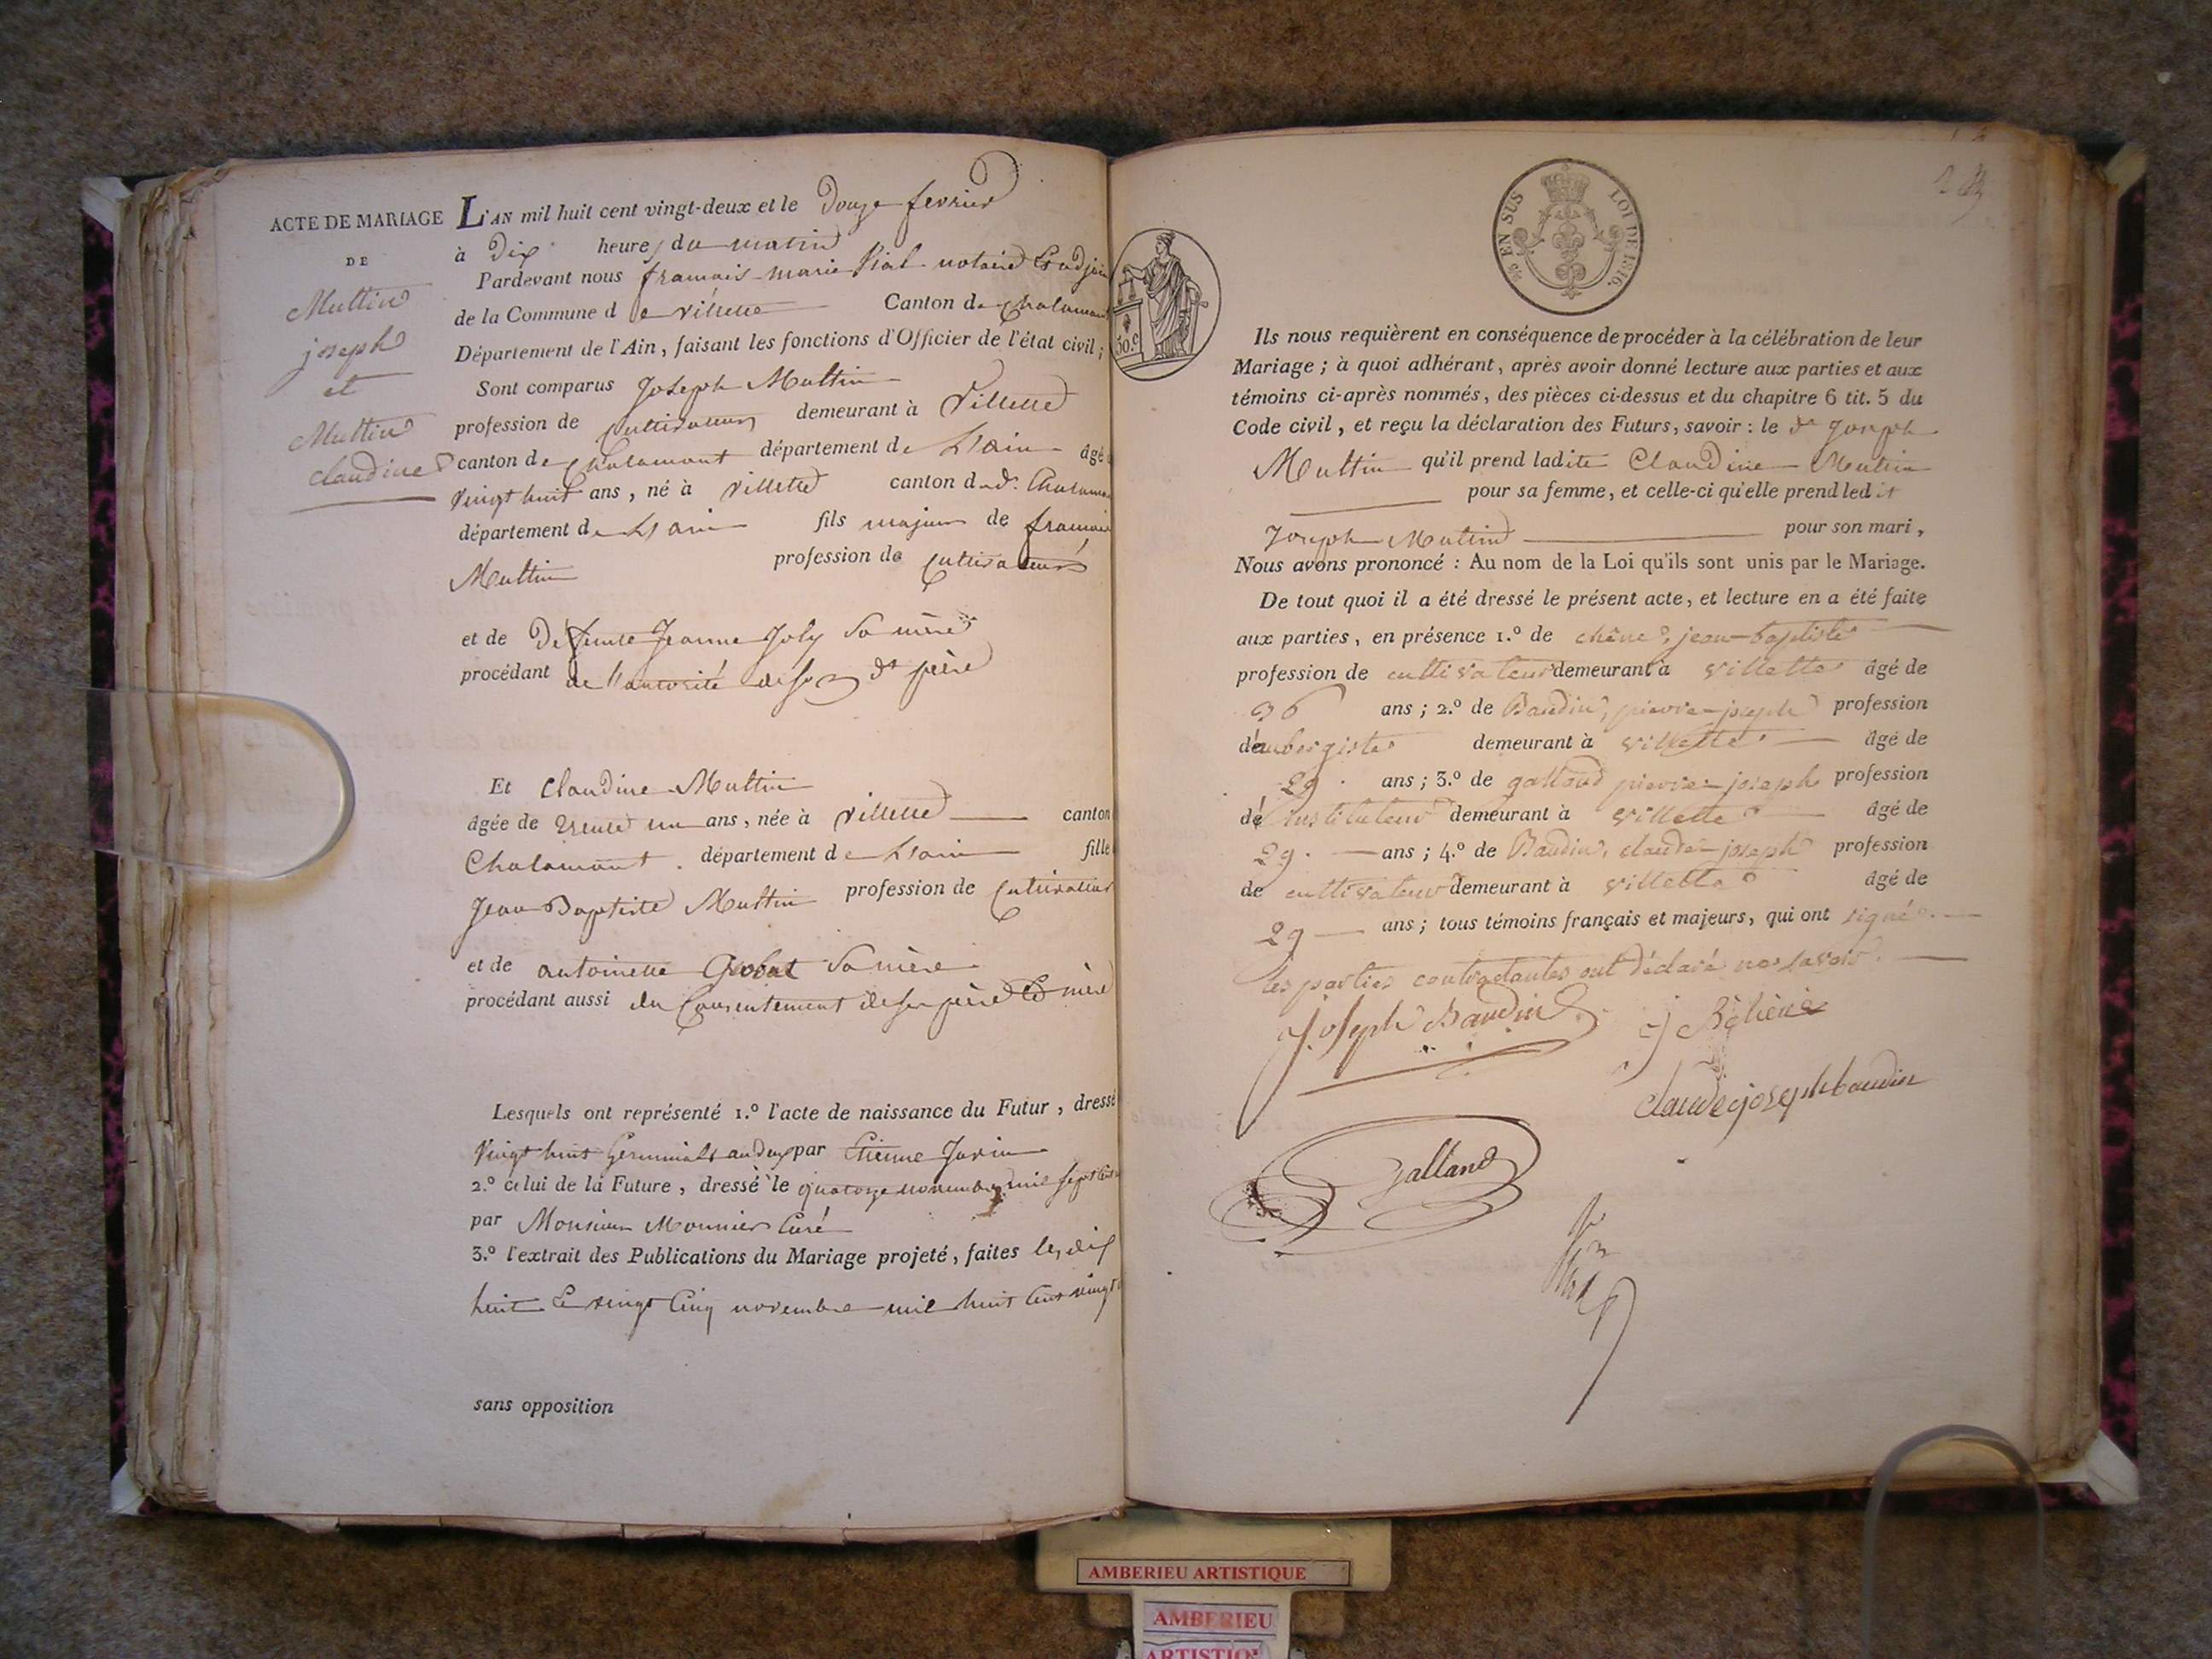 ACTE DE MARIAGE
DE
Muttin
joseph
et
Muttin
claudine
L'AN mil huit cent vingt-deux et le Douze fevrier
à Dix heures du matin
Pardevant nous francois marie notaire
de la Commune de villette Canton de Chalamont
Département de l'Ain, faisant les fonctions d'Officier de l'état civil;
Sont comparus Joseph Muttin
profession de Cultivateur demeurant à Villette
canton de Chalamont département de L'ain âgé
vingt huit ans, né à villette canton de
département de L'ain fils majeur de francois
Muttin profession de Cultivateur
et de Deffunte Jeanne Joly Sa mère
procédant de l'autorité de son dt père
Et Claudine Muttin
âgée de trente un ans, née à villette canton
Chalamont département de L'ain fille
Jean Baptiste Muttin profession de Cultivateur
et de antoinette Sa mère
procédant aussi du Consentement de ses père et mère
Lesquels ont représenté 1.º l'acte de naissance du Futur, dressé
Vingt huit Germinal an deux par Etienne
2.º celui de la Future, dressé le quatorze novembre mil sept Cent
par Monsieur Monnier Curé
3.º l'extrait des Publications du Mariage projeté, faites les dix
huit et vingt Cinq novembre mil huit Cent vingt
sans opposition
EN SUS
LOI DE 1816.
30.c
Ils nous requièrent en conséquence de procéder à la célébration de leur
Mariage; à quoi adhérant, après avoir donné lecture aux parties et aux
témoins ci-après nommés, des pièces ci-dessus et du chapitre 6 tit. 5 du
Code civil, et reçu la déclaration des Futurs, savoir: le dt Joseph
Muttin qu'il prend ladite Claudine Mutin
pour sa femme, et celle-ci qu'elle prend ledit
Joseph Mutin pour son mari,
Nous avons prononcé: Au nom de la Loi qu'ils sont unis par le Mariage.
De tout quoi il a été dressé le présent acte, et lecture en a été faite
aux parties, en présence 1.º de jean-baptiste
profession de cultivateur demeurant à villette âgé de
36 ans; 2.º de Baudin, pierre-joseph profession
d'aubergiste demeurant à villette âgé de
29 ans; 3.º de galland pierre-joseph profession
d'instituteur demeurant à villette âgé de
29 ans; 4.º de Baudin, claude-joseph profession
de cultivateur demeurant à villette âgé de
29 ans; tous témoins français et majeurs, qui ont signé.
les parties contractantes ont déclaré ne savoir.
Joseph Baudin
claude joseph baudin
Galland
AMBERIEU ARTISTIQUE
AMBERIEU